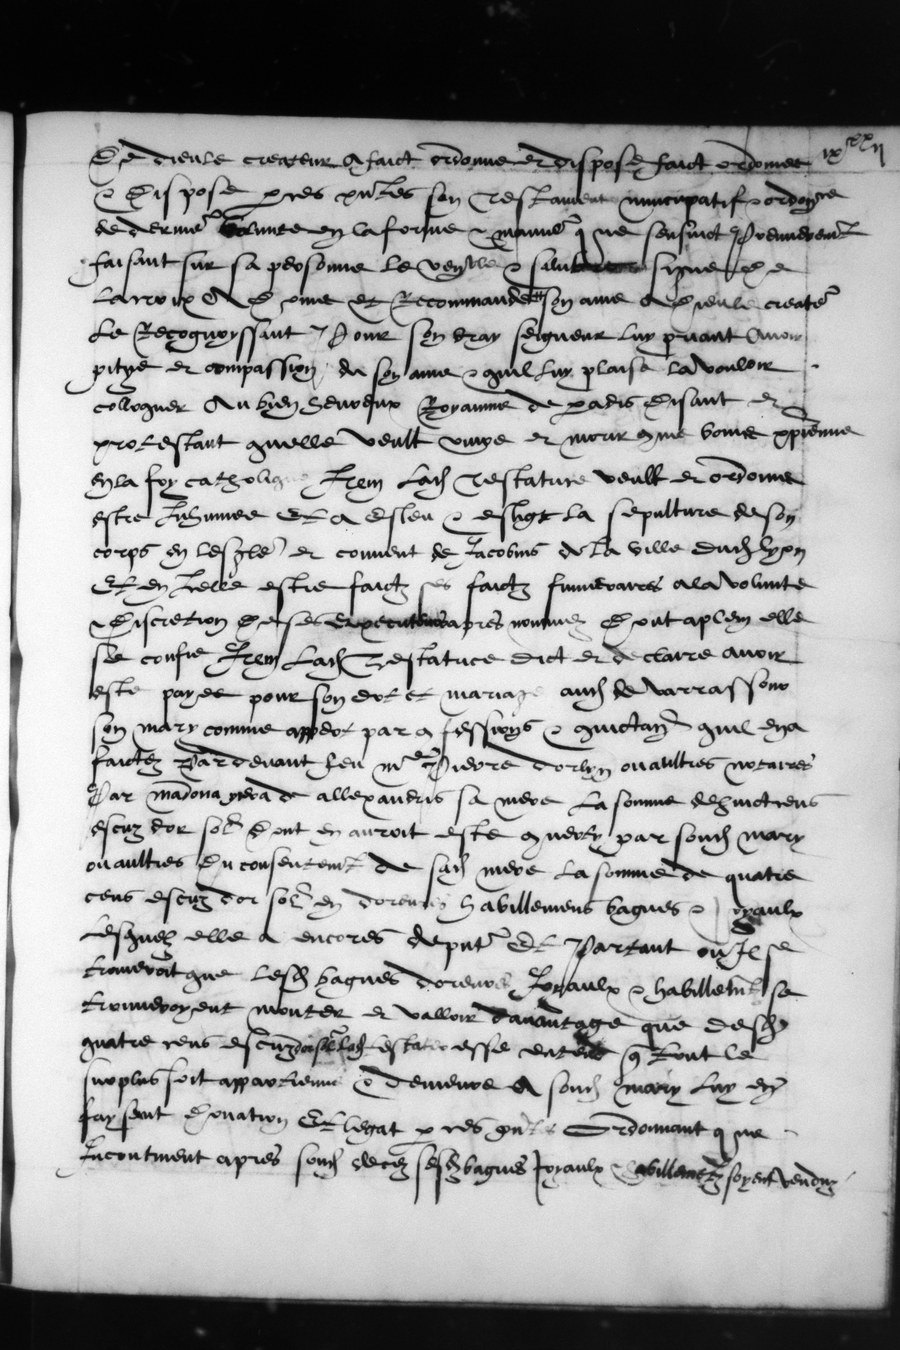 De dieu le createur a faict ordonne et dispose faict ordonne
& dispose par ces pntes son testament nuncupatif & ordonnce
de derniere volunte en la forme & maniere que sensuict Premierement
faisant sur sa personne le venerable & salutaire signe de
la croix A donne et Recommande son ame a dieu le createur
Le Recognoyssant Pour son vray seigneur luy priant avoir
pitye et compassion de son ame & quil luy plaise la vouloir
colloquer Au bien heureux Royaume de paradis disant et
protestant quelle veult vivre et morir comme bonne xpienne
en la foy catholique Item lad testatrice veult et ordonne
estre Inhumee Et a esleu & esligt la sepulture de son
corps en leglise et convent de Jacobins de la ville dud lyon
Et en Icelle estre faictz ses faictz funeraires a la volunte
& discretion de ses executeurs apres nommez dont a plein elle
se confie Item lad Testatrice dict et declaire avoir
este payee pour son dot et mariage aud de varrassour
son mary comme appert par confessions & quictance quil en a
faictez Par devant feu me Pierre dorlyn ou aultres notaires
Par madona de allexandris sa mere La somme de huict cens
escuz dor sol dont en auroit este par sond mary
ou aultres du consentemt de sad mere La somme de quatre
cens escuz dor sol en doreures habillemens bagues & Joyaulx
lesquelz elle a encores Et Partant ou Il se
trouveroit que lesd bagues doreures Joyaulx & habillemt se
trouveroyent monter et valloir davantage que desd
quatre cens escuz dor sol lad testateresse entend que tout le
surplus soit appartienne & demeure A sond mary luy en
faysant donation Et legat par ces pntes Ordonnant que
Incontinent apres sond deces sesd bagues Joyaulx & abillementz soyent venduz